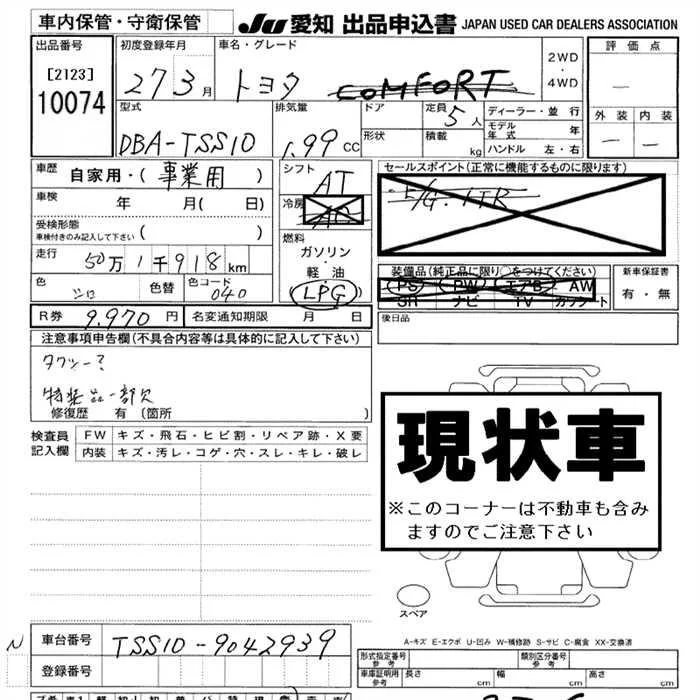 車内保管・守衛保管 JU 愛知 出品申込書 JAPAN USED CAR DEALERS ASSOCIATION
出品番号 [2123] 10074
初度登録年月 27 3月
車名・グレード トヨタ COMFORT
2WD・4WD
評価点 —
外装 — 内装 —
型式 DBA-TSS10
排気量 1.99 CC
ドア 形状
定員 5人 積載 kg
ディーラー・並行
モデル年式 年
ハンドル 左・右
車歴 自家用・(事業用)
車検 年 月( 日)
受検形態 車検付きのみ記入して下さい ( )
走行 50万1千918km
色 シロ 色替 色コード 040
シフト AT
冷房 AC
燃料 ガソリン・軽油 LPG
セールスポイント(正常に機能するものに限ります)
装備品(純正品に限り○をつけてください)
PS PW エアB AW
SR ナビ TV カセット
新車保証書 有・無
R券 9,970円 名変通知期限 月 日
後日品
注意事項申告欄(不具合内容等は具体的に記入して下さい)
修復歴 有 〔箇所 〕
検査員記入欄
FW キズ・飛石・ヒビ割・リペア跡・X要
内装 キズ・汚レ・コゲ・穴・スレ・キレ・破レ
現状車
※このコーナーは不動車も含み
ますのでご注意下さい
スペア
A-キズ E-エクボ U-凹み W-補修跡 S-サビ C-腐食 XX-交換済
N 車台番号 TSS10-9042939
登録番号
形式指定番号 参考 類別区分番号 参考
車庫証明用 参考 長さ cm 幅 cm 高さ cm